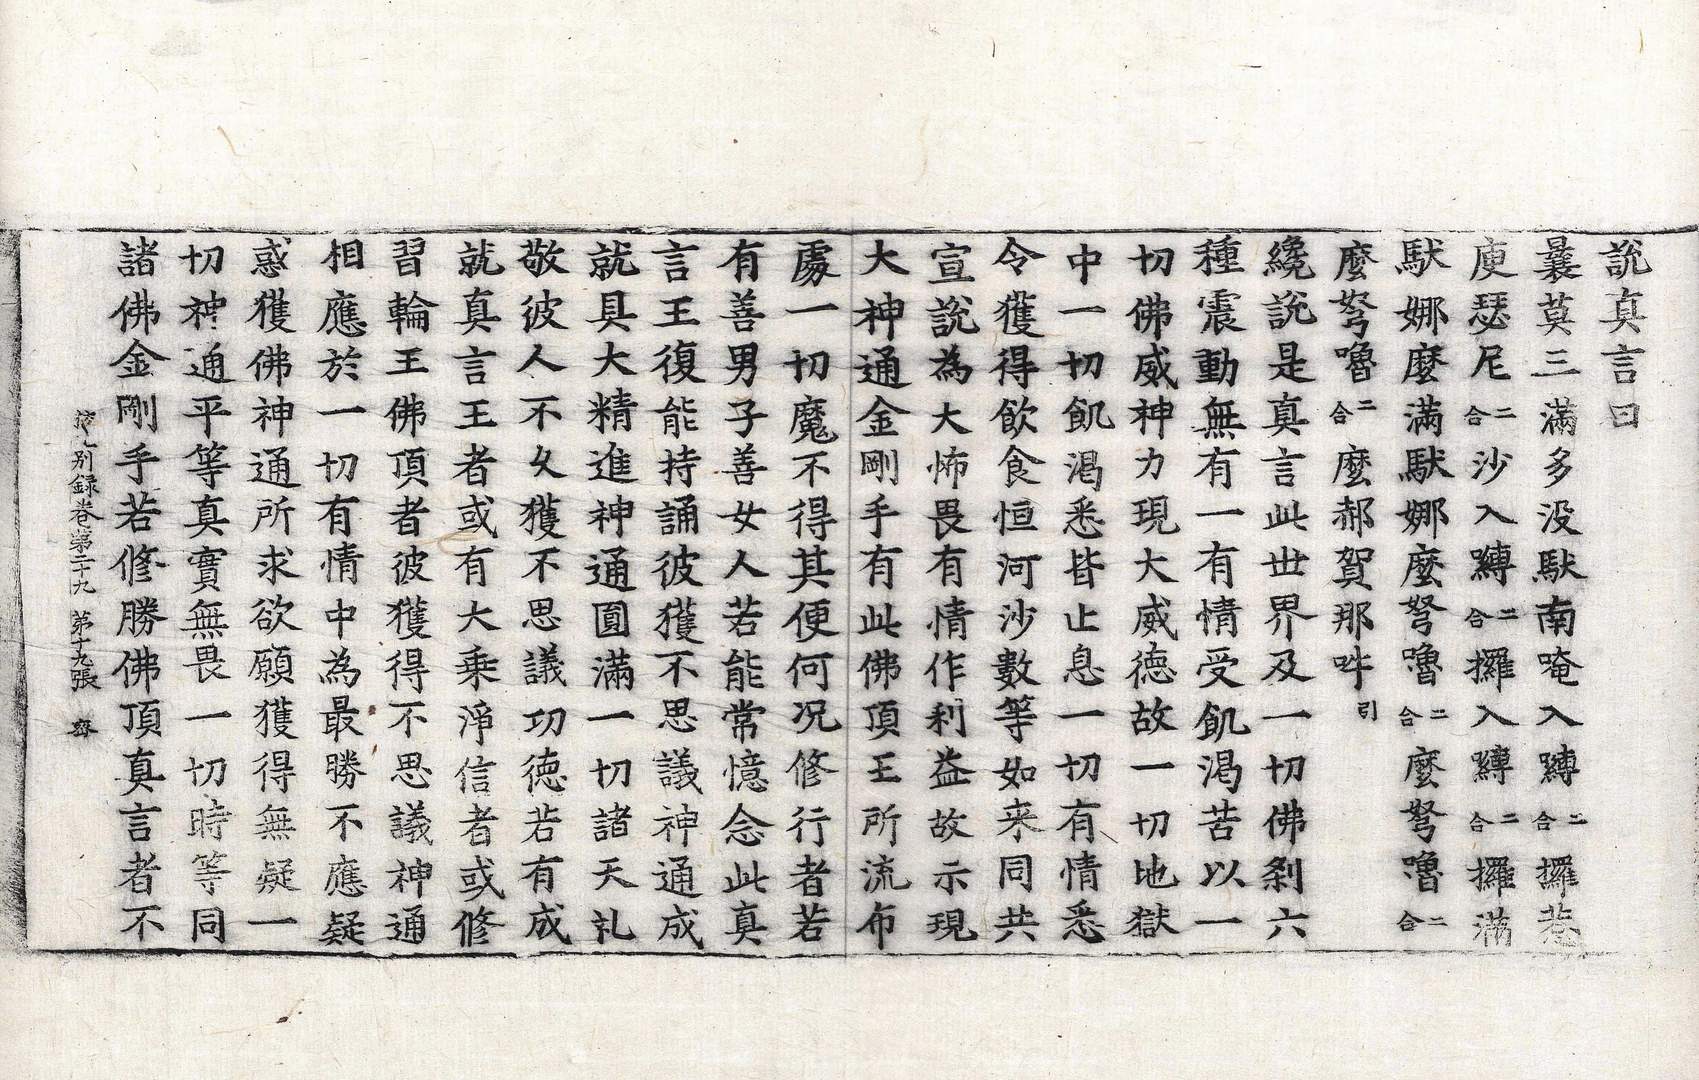 說真言曰
曩莫三滿多没馱南唵入嚩二合攞惹
庾瑟尼二合沙入嚩二合攞入嚩二合攞滿
馱娜麽滿馱娜麽弩嚕二合麽弩嚕二合
麽弩嚕二合麽郝賀那吽引
纔說是真言此世界及一切佛剎六
種震動無有一有情受飢渴苦以一
切佛威神力現大威德故一切地獄
中一切飢渴悉皆止息一切有情悉
令獲得飲食恒河沙數等如来同共
宣說為大怖畏有情作利益故示現
大神通金剛手有此佛頂王所流布
處一切魔不得其便何况修行者若
有善男子善女人若能常憶念此真
言王復能持誦彼獲不思議神通成
就具大精進神通圓滿一切諸天礼
敬彼人不久獲不思議功德若有成
就真言王者或有大乘淨信者或修
習輪王佛頂者彼獲得不思議神通
相應於一切有情中為最勝不應疑
惑獲佛神通所求欲願獲得無疑一
切神通平等真實無畏一切時等同
諸佛金剛手若修勝佛頂真言者不
別録卷第二十九 第十九張